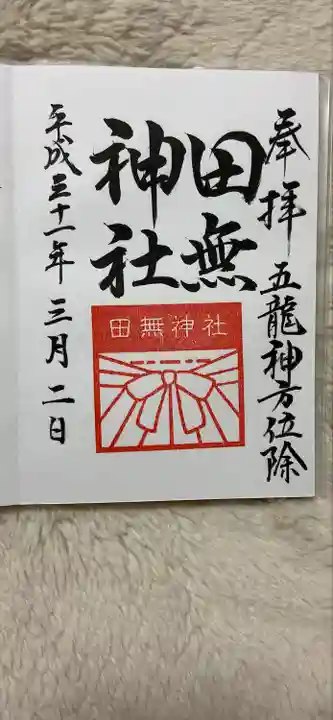 奉拝 五龍神方位除
田無
神社
田無神社
平成三十一年 三月二日